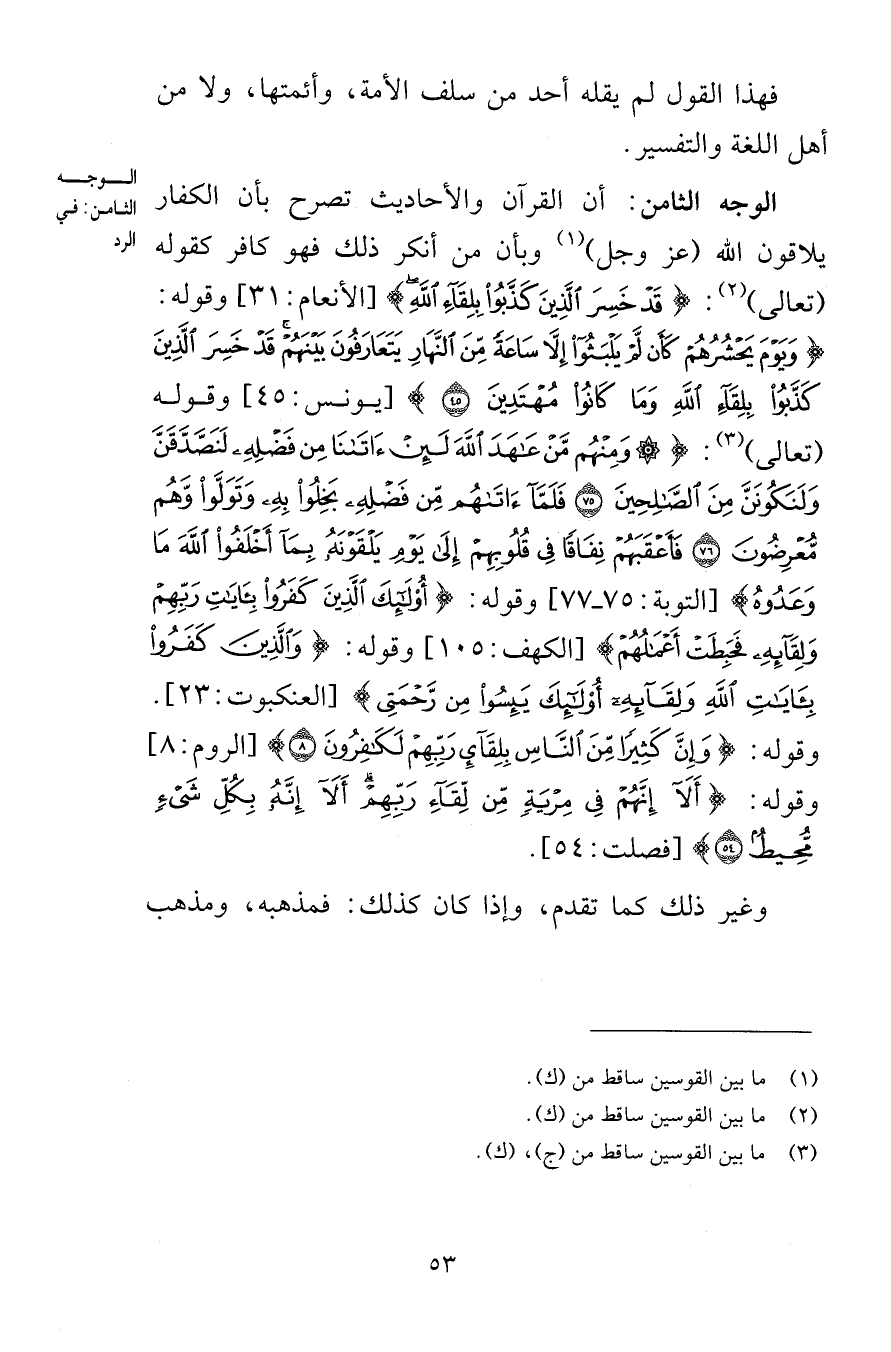 فهذا القول لم يقله أحد من سلف الأمة، وأئمتها، ولا من
أهل اللغة والتفسير.
الوجه الثامن: أن القرآن والأحاديث تصرح بأن الكفار
يلاقون الله (عز وجل)(١) وبأن من أنكر ذلك فهو كافر كقوله
(تعالى)(٢): ﴿ قَدْ خَسِرَ ٱلَّذِينَ كَذَّبُوا۟ بِلِقَآءِ ٱللَّهِۖ ﴾ [الأنعام: ٣١] وقوله:
﴿ وَيَوْمَ يَحْشُرُهُمْ كَأَن لَّمْ يَلْبَثُوٓا۟ إِلَّا سَاعَةً مِّنَ ٱلنَّهَارِ يَتَعَارَفُونَ بَيْنَهُمْۚ قَدْ خَسِرَ ٱلَّذِينَ
كَذَّبُوا۟ بِلِقَآءِ ٱللَّهِ وَمَا كَانُوا۟ مُهْتَدِينَ ٤٥ ﴾ [يونس: ٤٥] وقوله
(تعالى)(٣): ﴿ ۞ وَمِنْهُم مَّنْ عَـٰهَدَ ٱللَّهَ لَئِنْ ءَاتَىٰنَا مِن فَضْلِهِۦ لَنَصَّدَّقَنَّ
وَلَنَكُونَنَّ مِنَ ٱلصَّـٰلِحِينَ ٧٥ فَلَمَّآ ءَاتَىٰهُم مِّن فَضْلِهِۦ بَخِلُوا۟ بِهِۦ وَتَوَلَّوا۟ وَّهُم
مُّعْرِضُونَ ٧٦ فَأَعْقَبَهُمْ نِفَاقًا فِى قُلُوبِهِمْ إِلَىٰ يَوْمِ يَلْقَوْنَهُۥ بِمَآ أَخْلَفُوا۟ ٱللَّهَ مَا
وَعَدُوهُ﴾ [التوبة: ٧٥ـ٧٧] وقوله: ﴿ أُو۟لَـٰٓئِكَ ٱلَّذِينَ كَفَرُوا۟ بِـَٔايَـٰتِ رَبِّهِمْ
وَلِقَآئِهِۦ فَحَبِطَتْ أَعْمَـٰلُهُمْ﴾ [الكهف: ١٠٥] وقوله: ﴿ وَٱلَّذِينَ كَفَرُوا۟
بِـَٔايَـٰتِ ٱللَّهِ وَلِقَآئِهِۦٓ أُو۟لَـٰٓئِكَ يَئِسُوا۟ مِن رَّحْمَتِى ﴾ [العنكبوت: ٢٣].
وقوله: ﴿ وَإِنَّ كَثِيرًا مِّنَ ٱلنَّاسِ بِلِقَآئِ رَبِّهِمْ لَكَـٰفِرُونَ ٨﴾ [الروم: ٨]
وقوله: ﴿ أَلَآ إِنَّهُمْ فِى مِرْيَةٍ مِّن لِّقَآءِ رَبِّهِمْۗ أَلَآ إِنَّهُۥ بِكُلِّ شَىْءٍ
مُّحِيطٌۢ ٥٤﴾ [فصلت: ٥٤].
وغير ذلك كما تقدم، وإذا كان كذلك: فمذهبه، ومذهب
الـــوجـــه
الثامن: في
الرد
(١) ما بين القوسين ساقط من (ك).
(٢) ما بين القوسين ساقط من (ك).
(٣) ما بين القوسين ساقط من (ج)، (ك).
٥٣